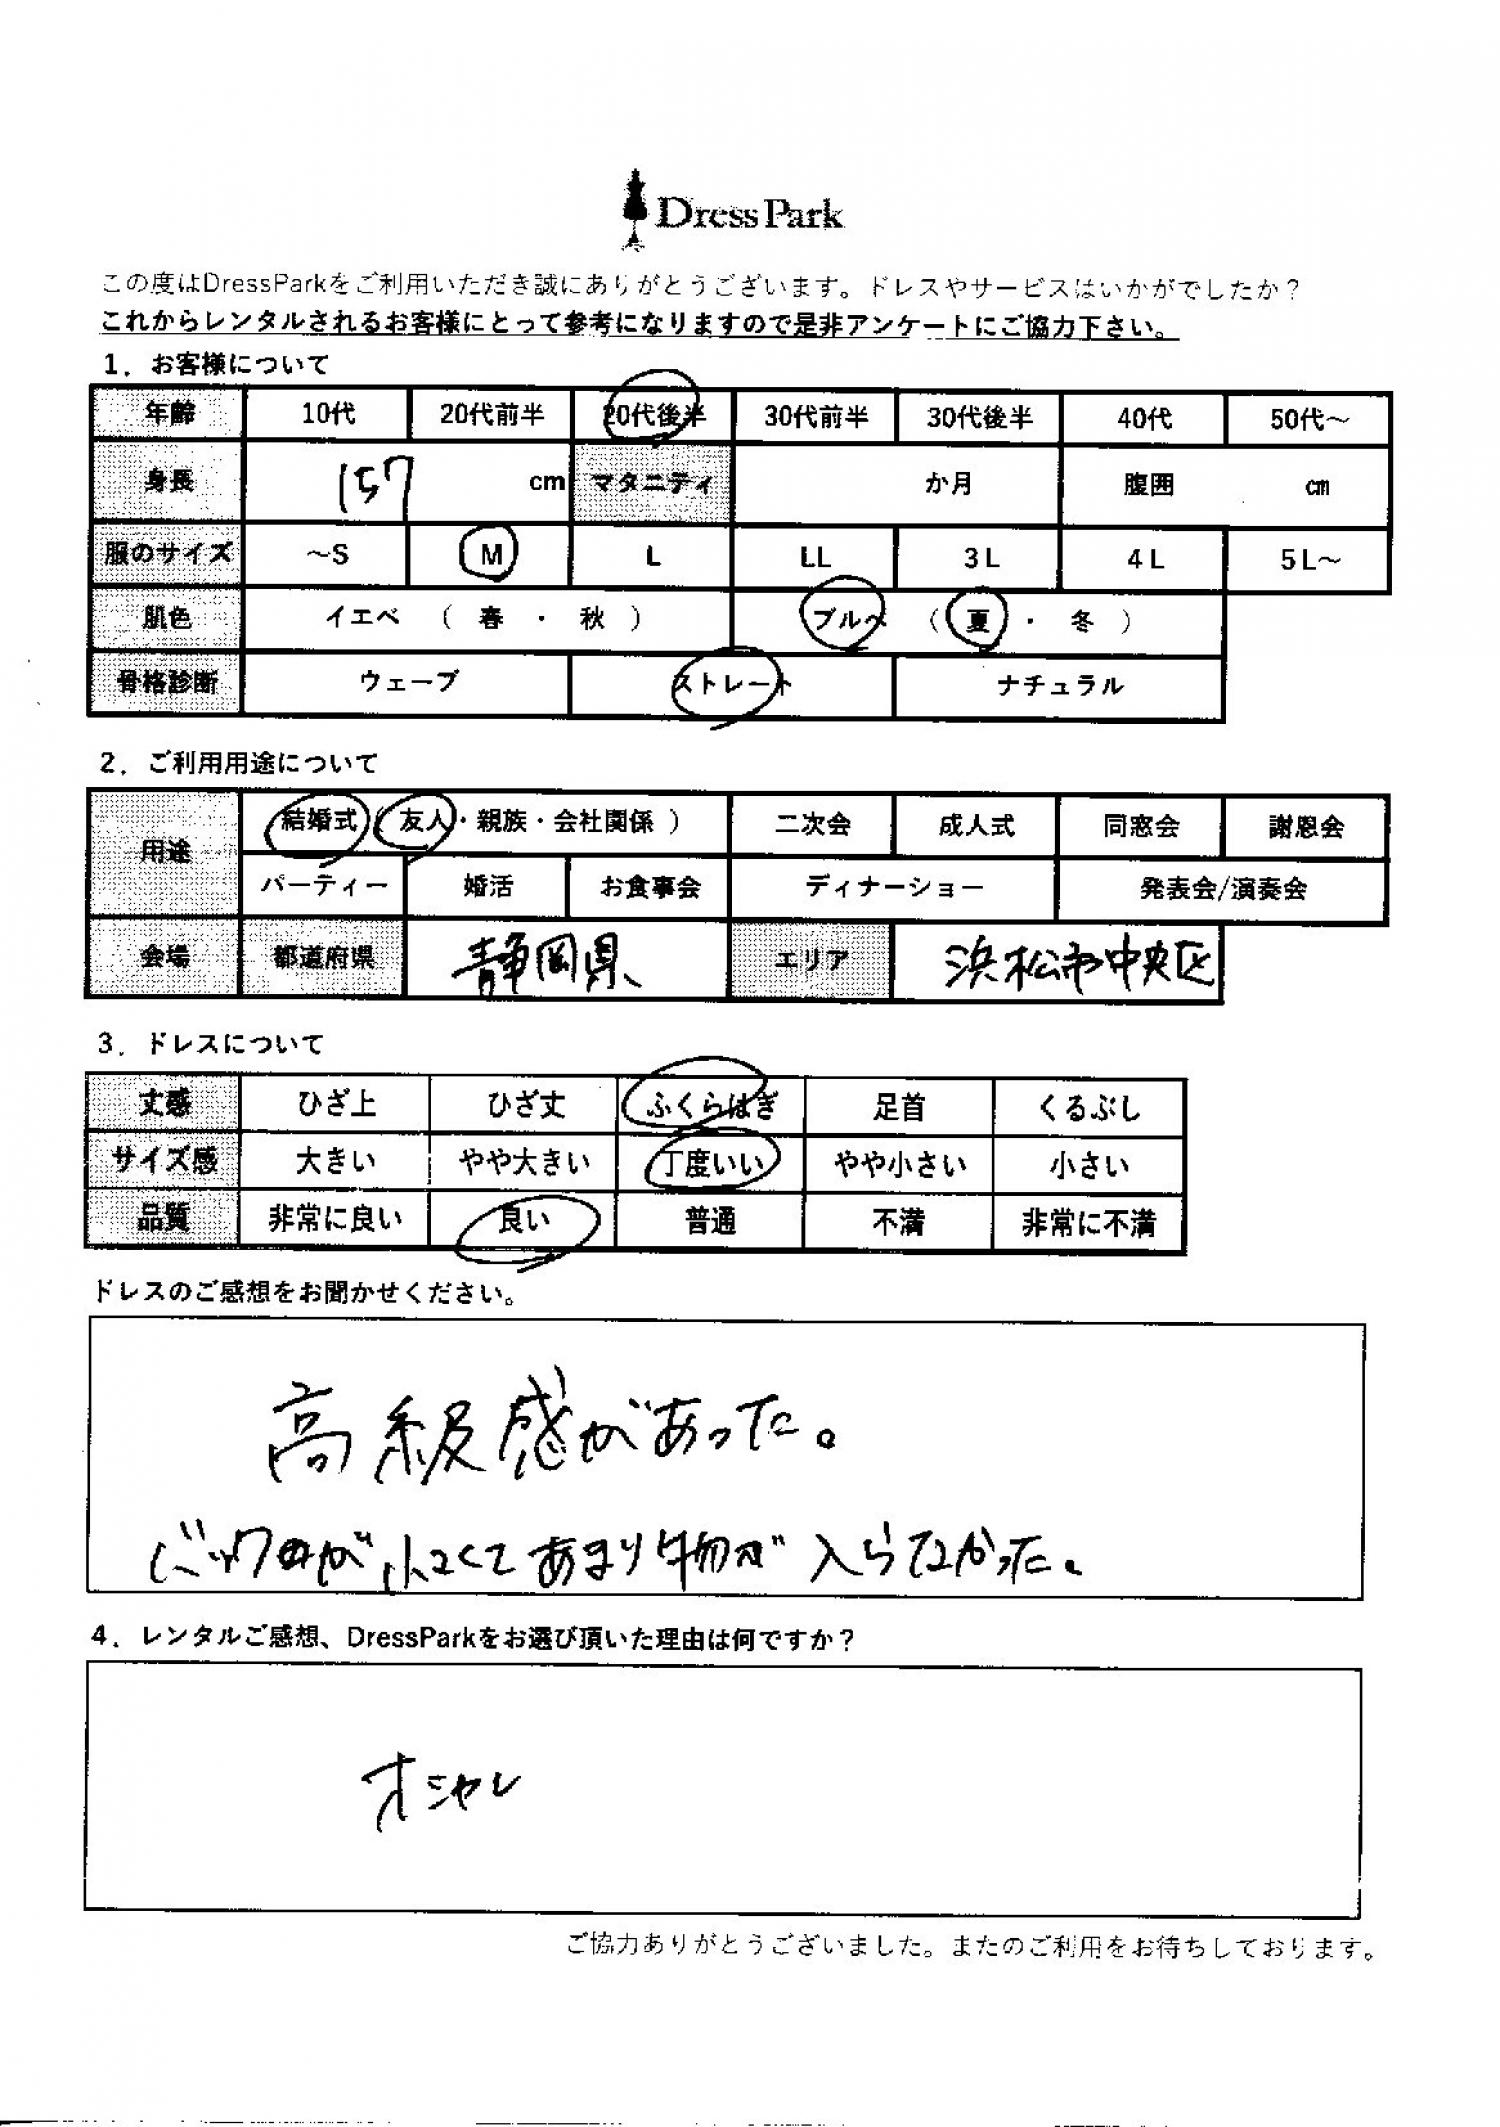 DressPark
この度はDressParkをご利用いただき誠にありがとうございます。ドレスやサービスはいかがでしたか？
これからレンタルされるお客様にとって参考になりますので是非アンケートにご協力下さい。
1．お客様について
年齢 10代 20代前半 20代後半 30代前半 30代後半 40代 50代～
身長 157 cm マタニティ か月 腹囲 cm
服のサイズ ～S M L LL 3L 4L 5L～
肌色 イエベ （ 春 ・ 秋 ） ブルベ （ 夏 ・ 冬 ）
骨格診断 ウェーブ ストレート ナチュラル
2．ご利用用途について
用途 結婚式（ 友人・親族・会社関係 ） 二次会 成人式 同窓会 謝恩会
パーティー 婚活 お食事会 ディナーショー 発表会/演奏会
会場 都道府県 静岡県 エリア 浜松市中央区
3．ドレスについて
丈感 ひざ上 ひざ丈 ふくらはぎ 足首 くるぶし
サイズ感 大きい やや大きい 丁度いい やや小さい 小さい
品質 非常に良い 良い 普通 不満 非常に不満
ドレスのご感想をお聞かせください。
高級感があった。
バックが小さくてあまり物が入らなかった。
4．レンタルご感想、DressParkをお選び頂いた理由は何ですか？
オシャレ
ご協力ありがとうございました。またのご利用をお待ちしております。